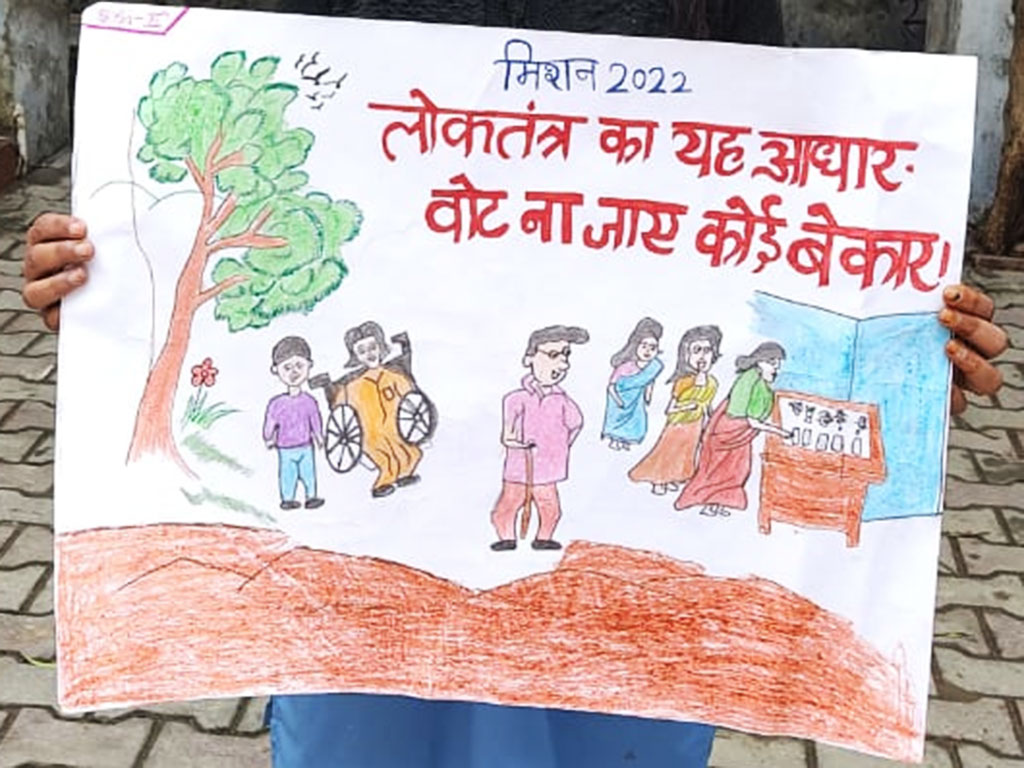 मिशन 2022
लोकतंत्र का यह आधार
वोट ना जाए कोई बेकार।